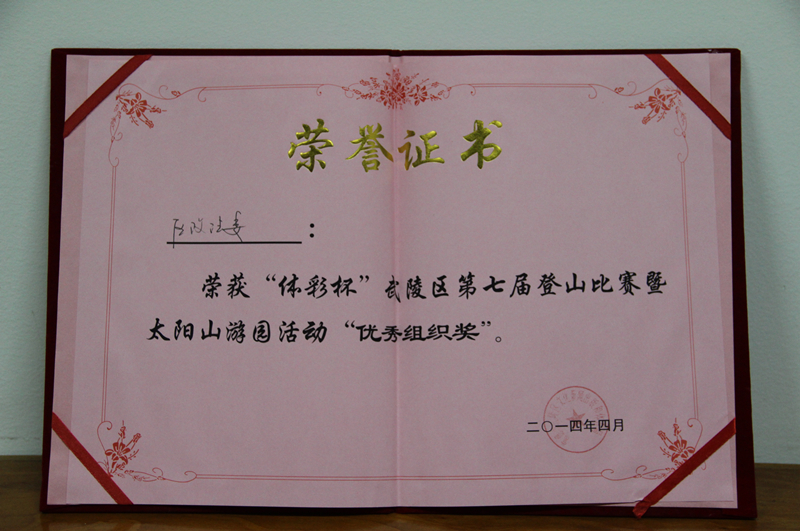 荣誉证书
:
荣获“体彩杯”武陵区第七届登山比赛暨
太阳山游园活动“优秀组织奖”。
二〇一四年四月